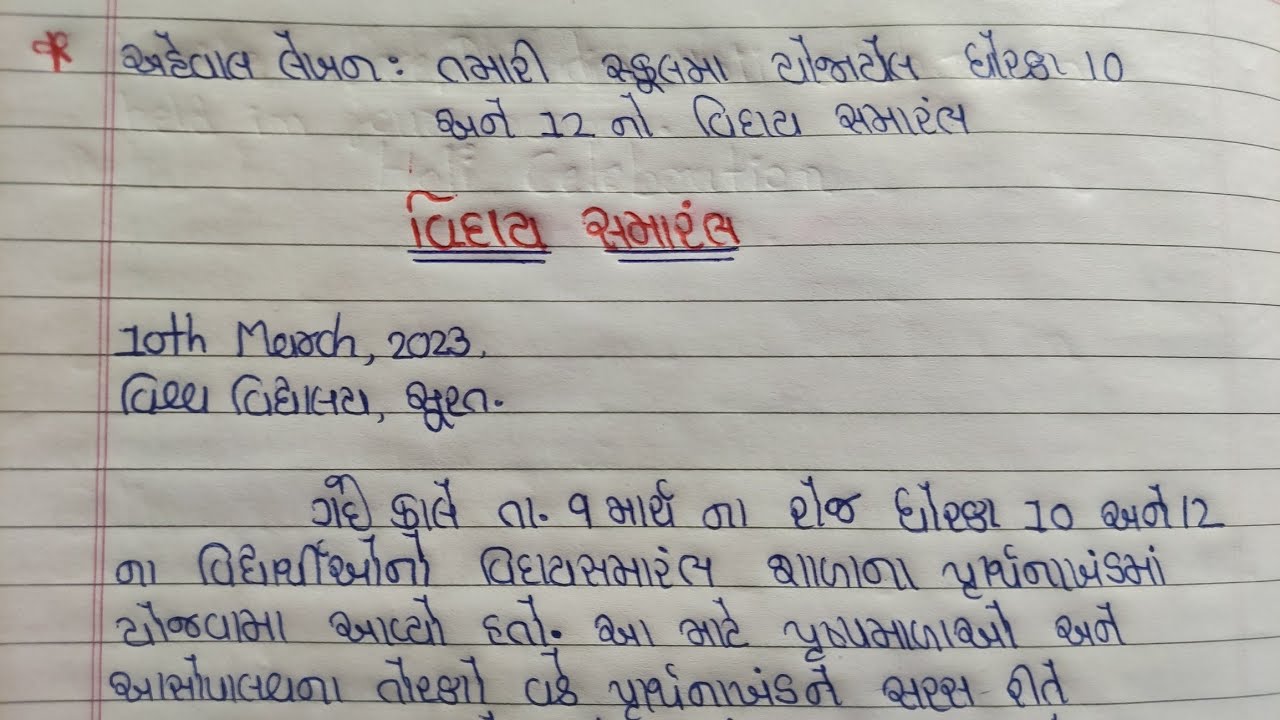 * અહેવાલ લેખન: તમારી સ્કૂલમા યોજાયેલ ધોરણ 10
અને 12 નો વિદાય સમારંભ
વિદાય સમારંભ
10th March, 2023.
વિદ્યાલય, સુરત.
ગઈ કાલે તા. 9 માર્ચ ના રોજ ધોરણ 10 અને 12
ના વિદ્યાર્થીઓનો વિદાયસમારંભ શાળાના પ્રાર્થનાખંડમાં
યોજવામા આવ્યો હતો. આ માટે પુષ્પમાળાઓ અને
આસોપાલવના તોરણો વડે પ્રાર્થનાખંડને સરસ રીતે